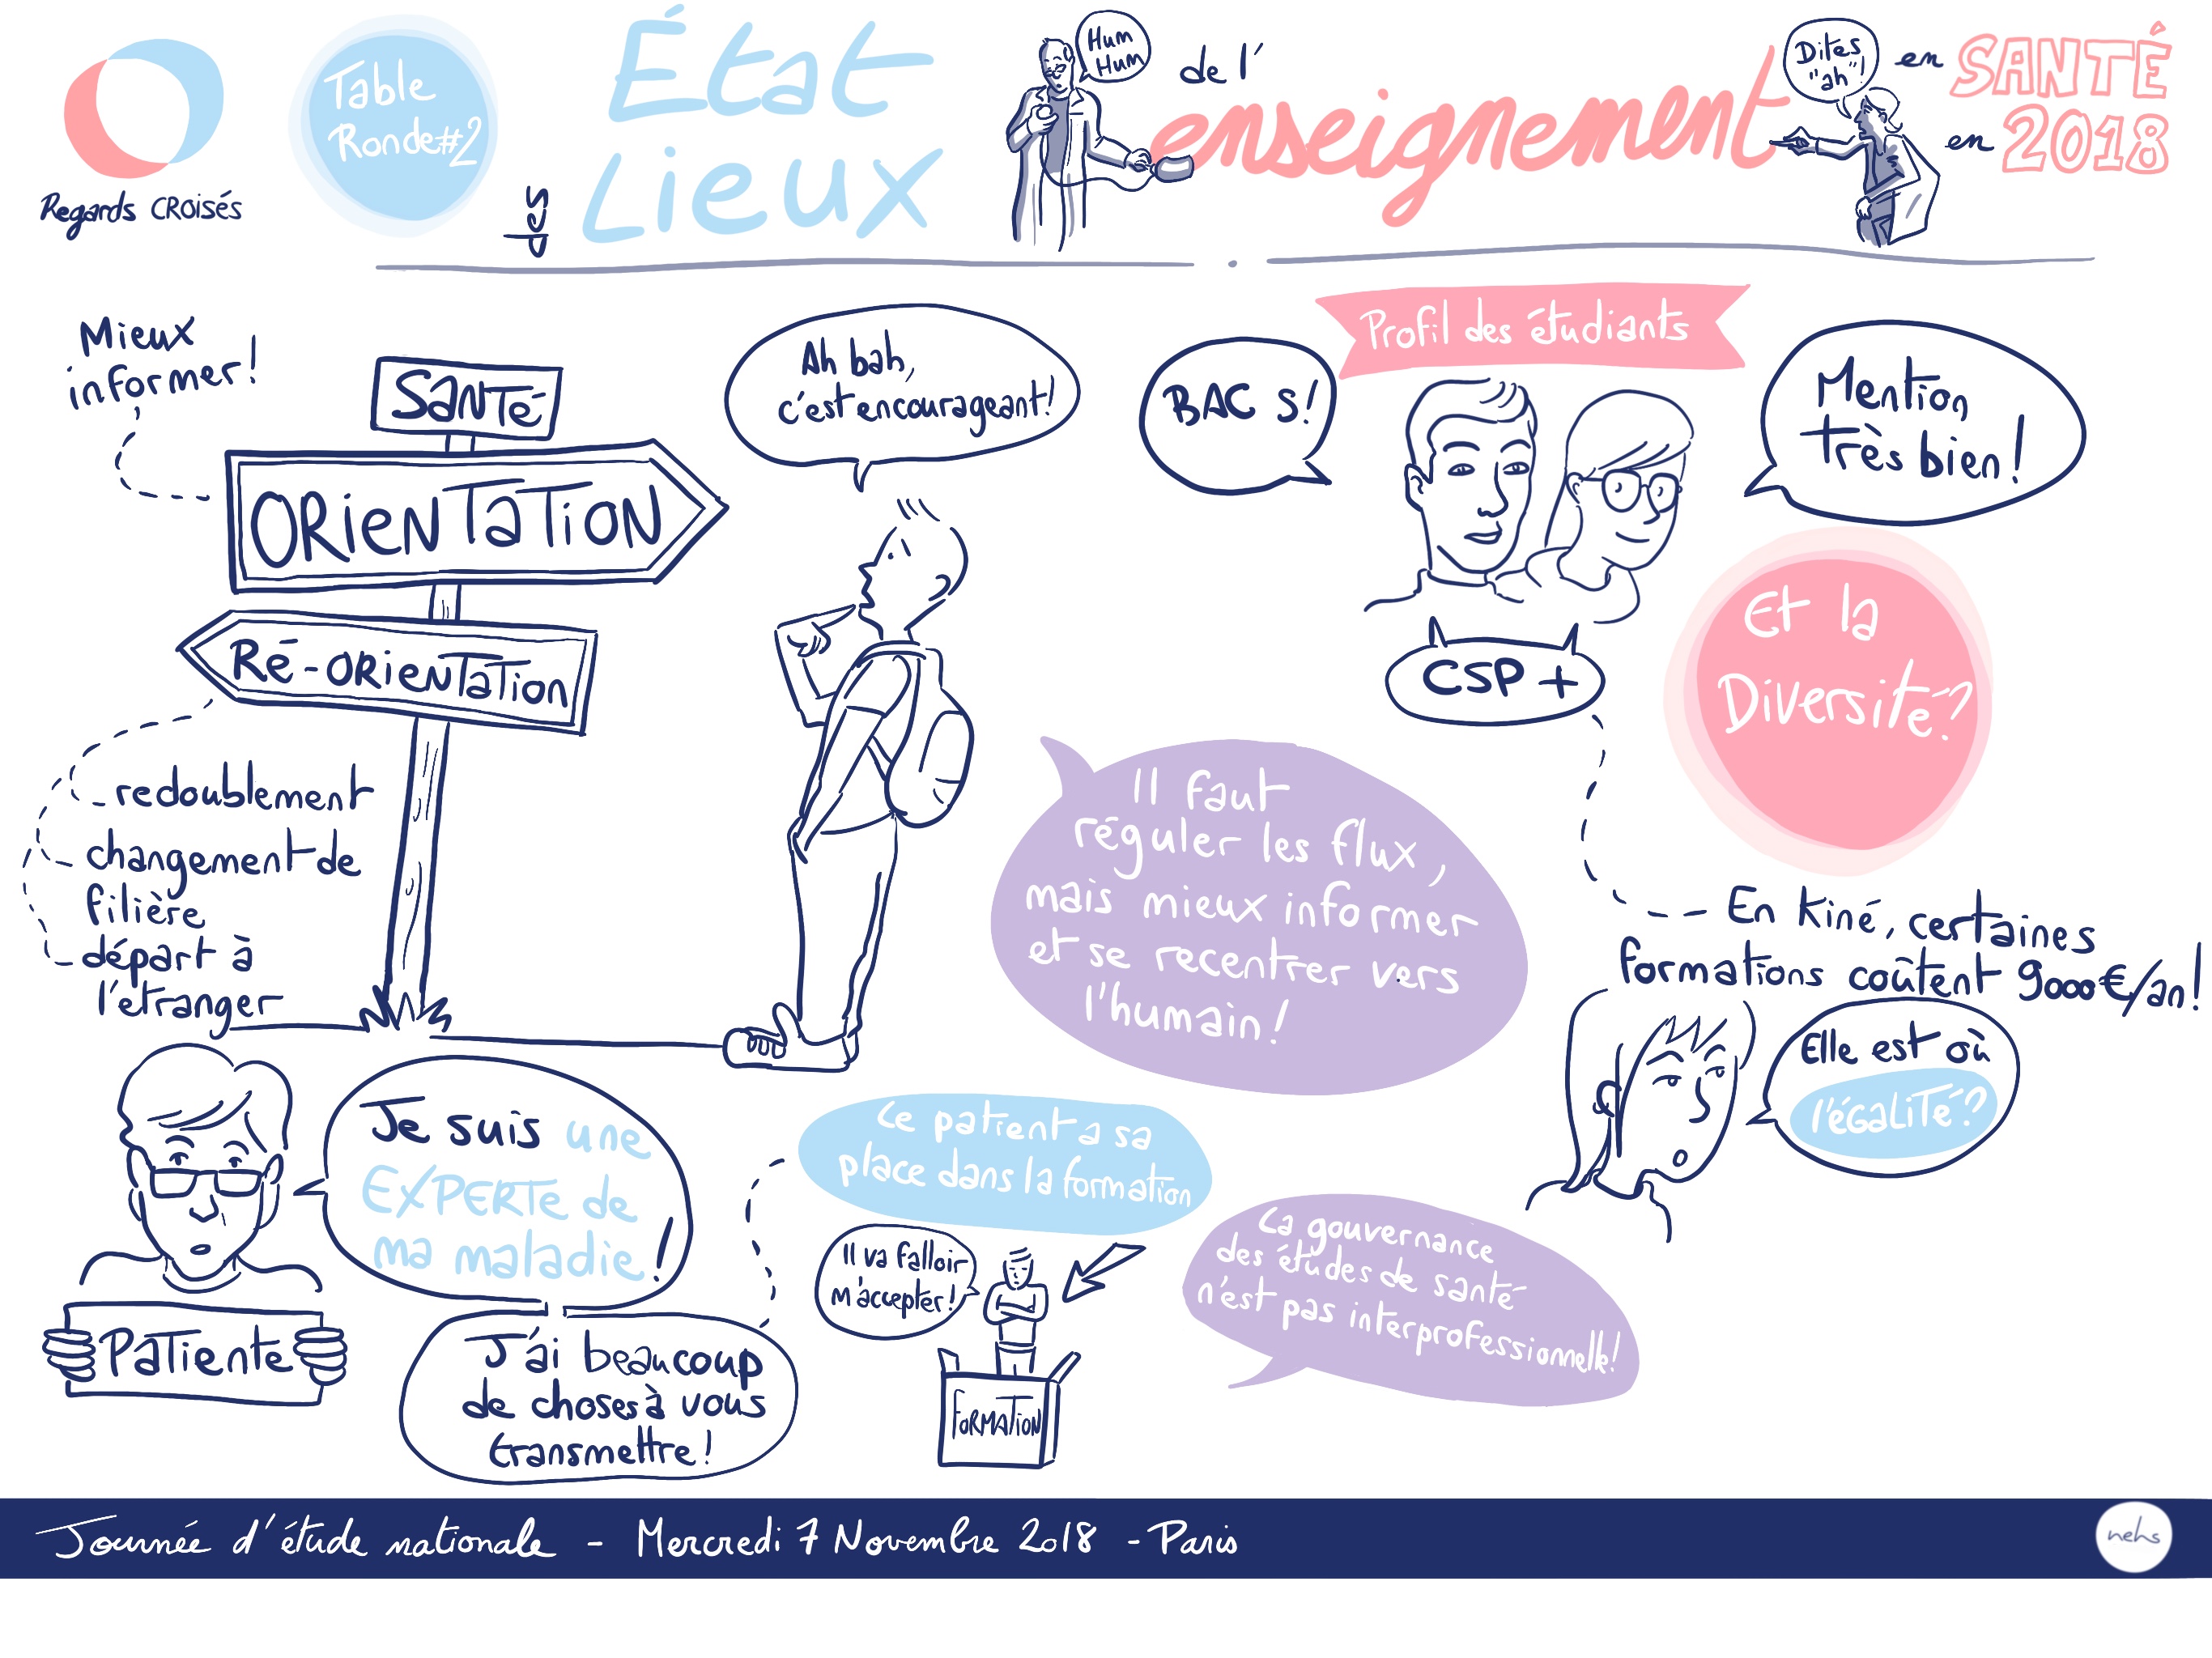 Regards CROisés
Table
Ronde#2
État
des
Lieux
Hum
Hum
de l'
enseignement
Dites
"ah"!
en SANTÉ
en 2018
Mieux
informer!
SANTé
ORienTaTiON
Ré-ORienTaTion
redoublement
changement de
filière
départ à
l'etranger
Ah bah,
c'est encourageant!
Profil des étudiants
BAC S!
Mention
très bien!
CSP +
Et la
Diversité?
En kiné, certaines
formations coûtent 9000€/an!
Elle est où
l'éGALiTé?
Il faut
réguler les flux,
mais mieux informer
et se recentrer vers
l'humain!
Je suis une
EXPERTE de
ma maladie!
PaTienTe
J'ai beaucoup
de choses à vous
transmettre!
Le patient a sa
place dans la formation
Il va falloir
m'accepter!
FORMATiON
La gouvernance
des études de santé
n'est pas interprofessionnelle!
Journée d'étude nationale - Mercredi 7 Novembre 2018 - Paris
nehs